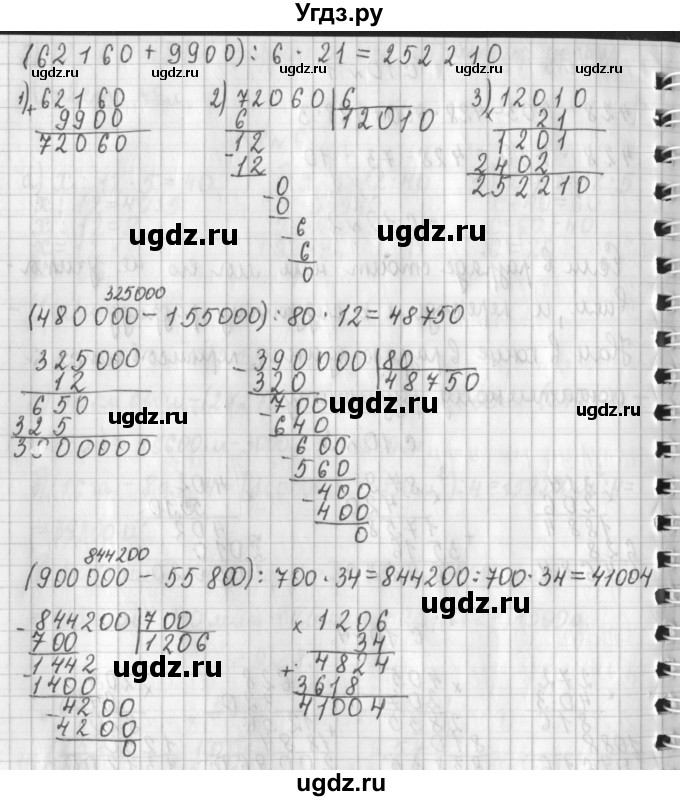 Угдз.ру
(62160 + 9900) : 6 · 21 = 252210
ugdz.ru ugdz.ru ugdz.ru ugdz.ru
1) + 62160
9900
72060
2) 72060 | 6
6 12010
- 12
12
- 0
0
- 6
6
0
3) × 12010
21
1201
2402
252210
ugdz.ru ugdz.ru ugdz.ru
325000
(480000 - 155000) : 80 · 12 = 48750
325000
12
650
325
3900000
- 390000 | 80
320 48750
- 700
640
- 600
560
- 400
400
0
ugdz.ru ugdz.ru ugdz.ru
844200
(900000 - 55800) : 700 · 34 = 844200 : 700 · 34 = 41004
ugdz.ru
- 844200 | 700
700 1206
- 1442
1400
- 4200
4200
0
× 1206
34
+ 4824
3618
41004
ugdz.ru ugdz.ru
ugdz.ru